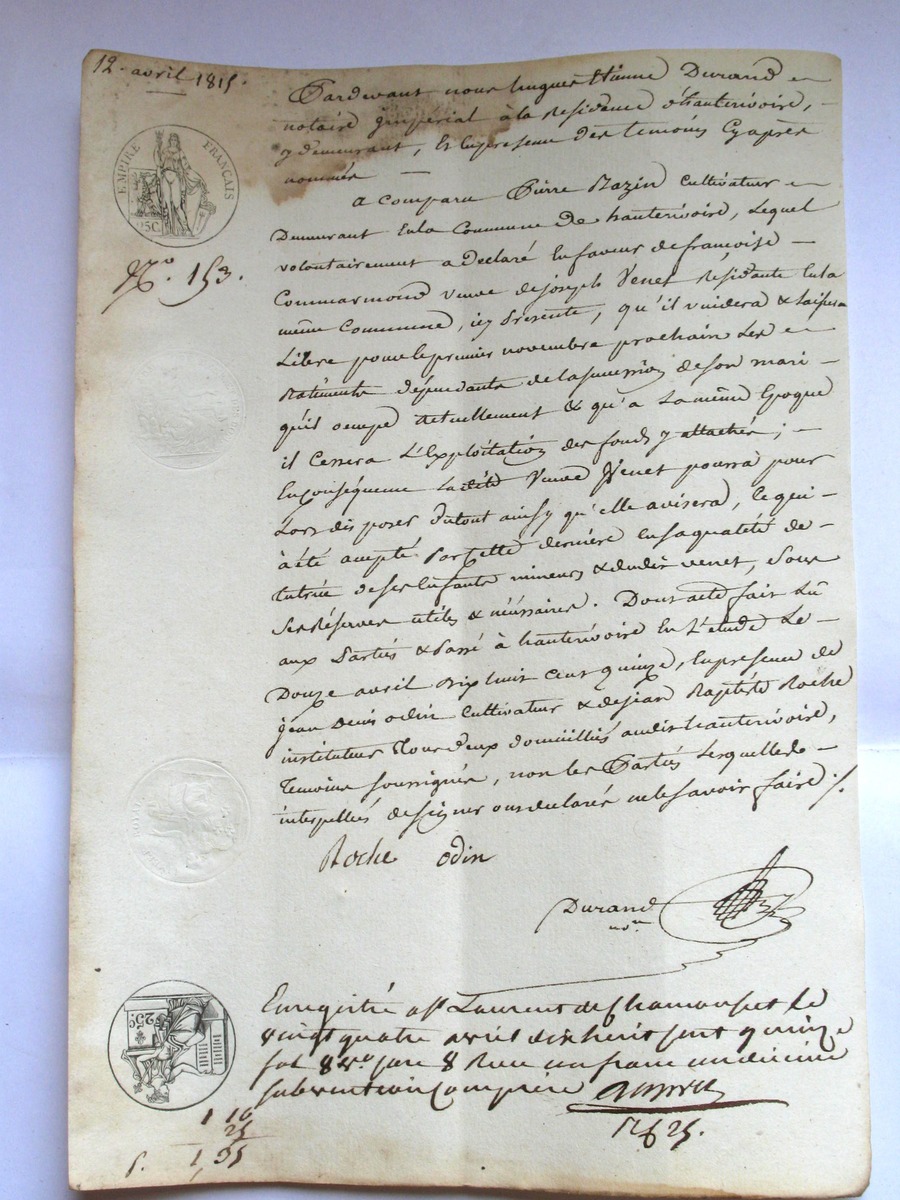 12. avril 1815.
Pardevant nous hugues Etienne Durand
notaire imperial à la Residance d'hauterivoire,
y demeurant, Et En presence des temoins Cyaprès
nommés
EMPIRE FRANÇAIS
25C.
N.° 153.
a comparu Pierre Bazin Cultivateur
Demeurant En la Commune De hauterivoire, Lequel
volontairement a Declaré En faveur de françoise
Commarmond veuve de joseph Venet Residante En la
même Commune, icy Presente, qu'il vuidera & Laissera
Libre pour le premier novembre prochain Les
Batiments dépendants de la succession de son mari
qu'il occupe actuellement & qu'a La même Epoque
il Cessera L'Exploitation des fonds y attachés;
En conséquence La dite Veuve Venet pourra pour
Lors disposer du tout ainsy qu'elle avisera, Ce qui
à été accepté Par Cette dernière En sa qualité de
tutrice de ses Enfants mineurs & dudit venet, Sous
Ses Réserves utiles & nécessaires. Dont acte fait Lû
aux Parties & Passé à hauterivoire En L'etude Le
Douze avril dix huit Cent quinze, En presence de
jean Denis odin Cultivateur & de jean Baptiste Roche
instituteur Tous deux domiciliés audit hauterivoire,
Temoins soussignés, non les Parties Lesquelles
interpellées de signer ont declaré ne le savoir faire ./.
Roche odin
Durand
nore
Enregistré a St Laurent de Chamousset le
vingt quatre avril dix huit cent quinze
fol 8 vo. Case 8 Recu un franc un décime
subvention Comprise
25C.
1 10
25
1,35